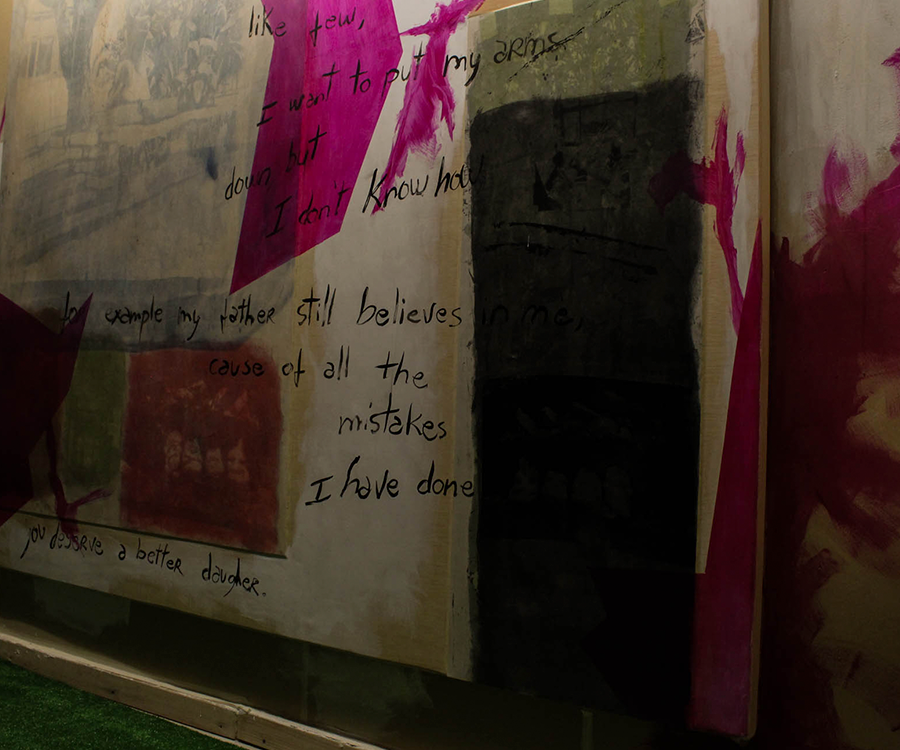 like few,
I want to put my arms
down but
I don't know how
for example my father still believes in me,
cause of all the
mistakes
I have done
you deserve a better daugher.